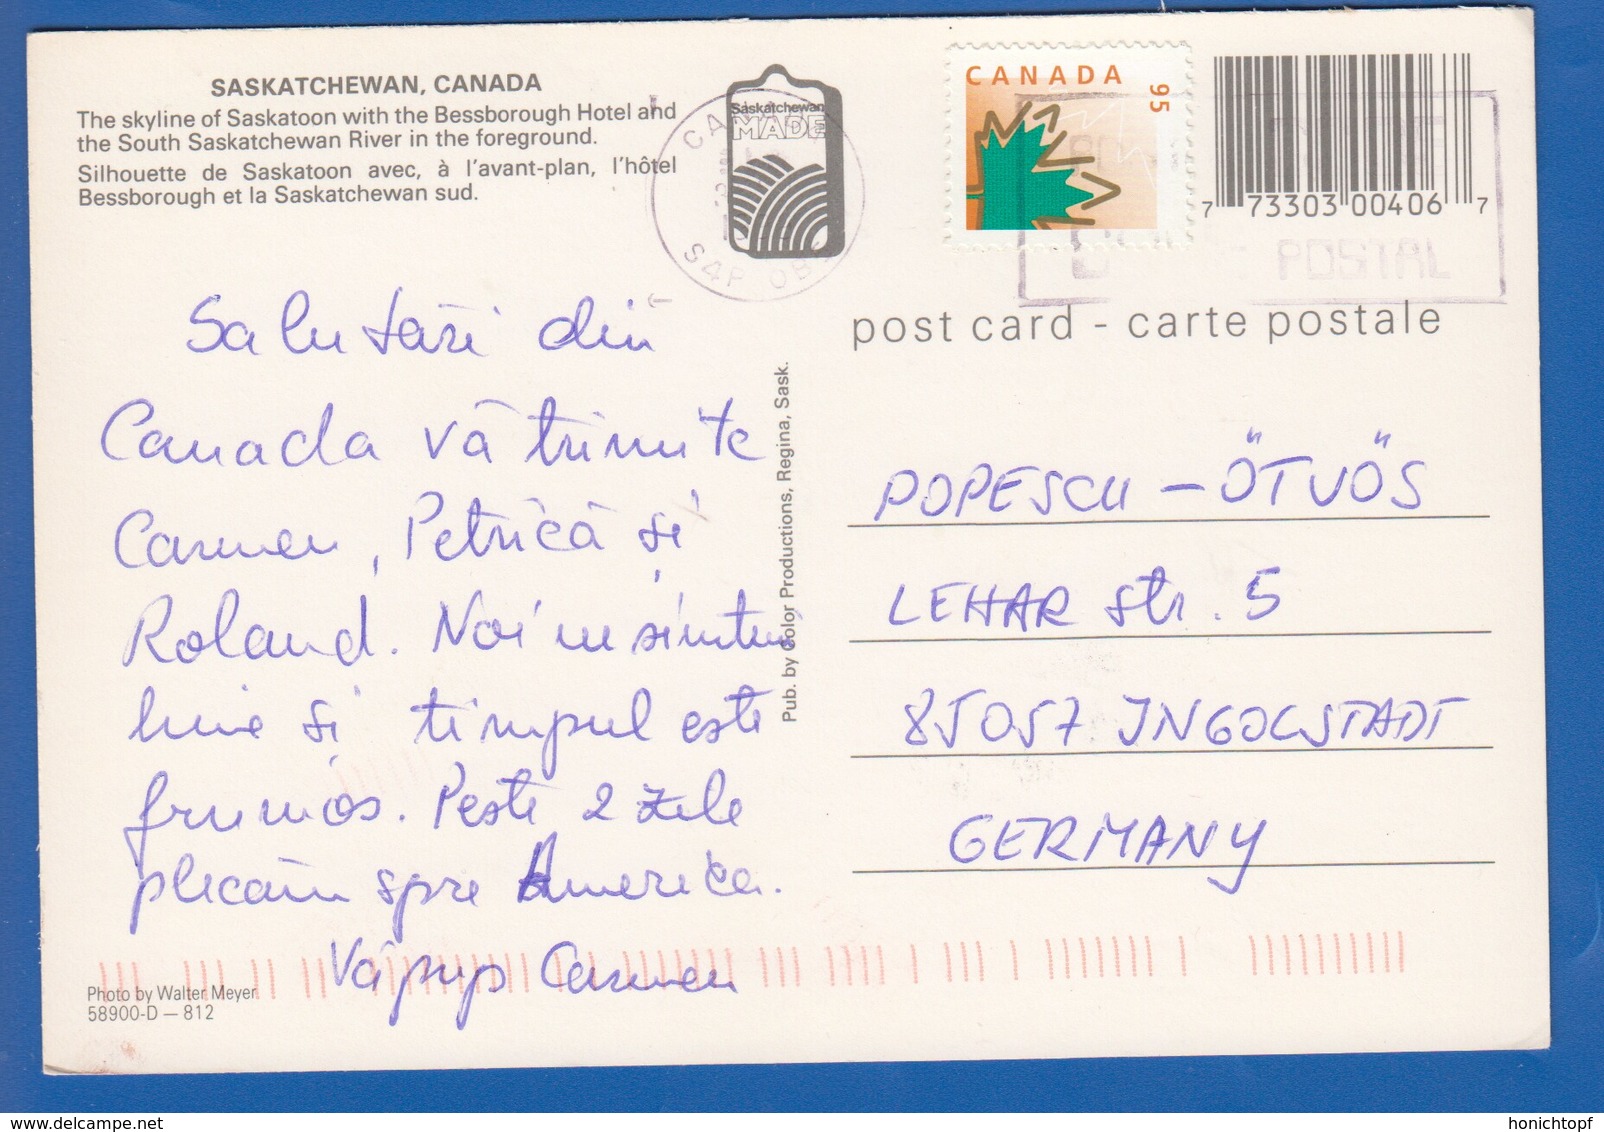 SASKATCHEWAN, CANADA
The skyline of Saskatoon with the Bessborough Hotel and
the South Saskatchewan River in the foreground.
Silhouette de Saskatoon avec, à l'avant-plan, l'hôtel
Bessborough et la Saskatchewan sud.
Saskatchewan
MADE
CANADA
S4P
CANADA
95
7 73303 00406 7
POSTAL
post card - carte postale
Salutări din
Canada vă trimite
Carmen, Petrică și
Roland. Noi ne simțim
bine și timpul este
frumos. Peste 2 zile
plecăm spre America.
Vă pup Carmen
Pub. by Color Productions, Regina, Sask.
POPESCU - ÖTVÖS
LEHAR str. 5
85057 INGOLSTADT
GERMANY
Photo by Walter Meyer
58900-D — 812
honichtopf